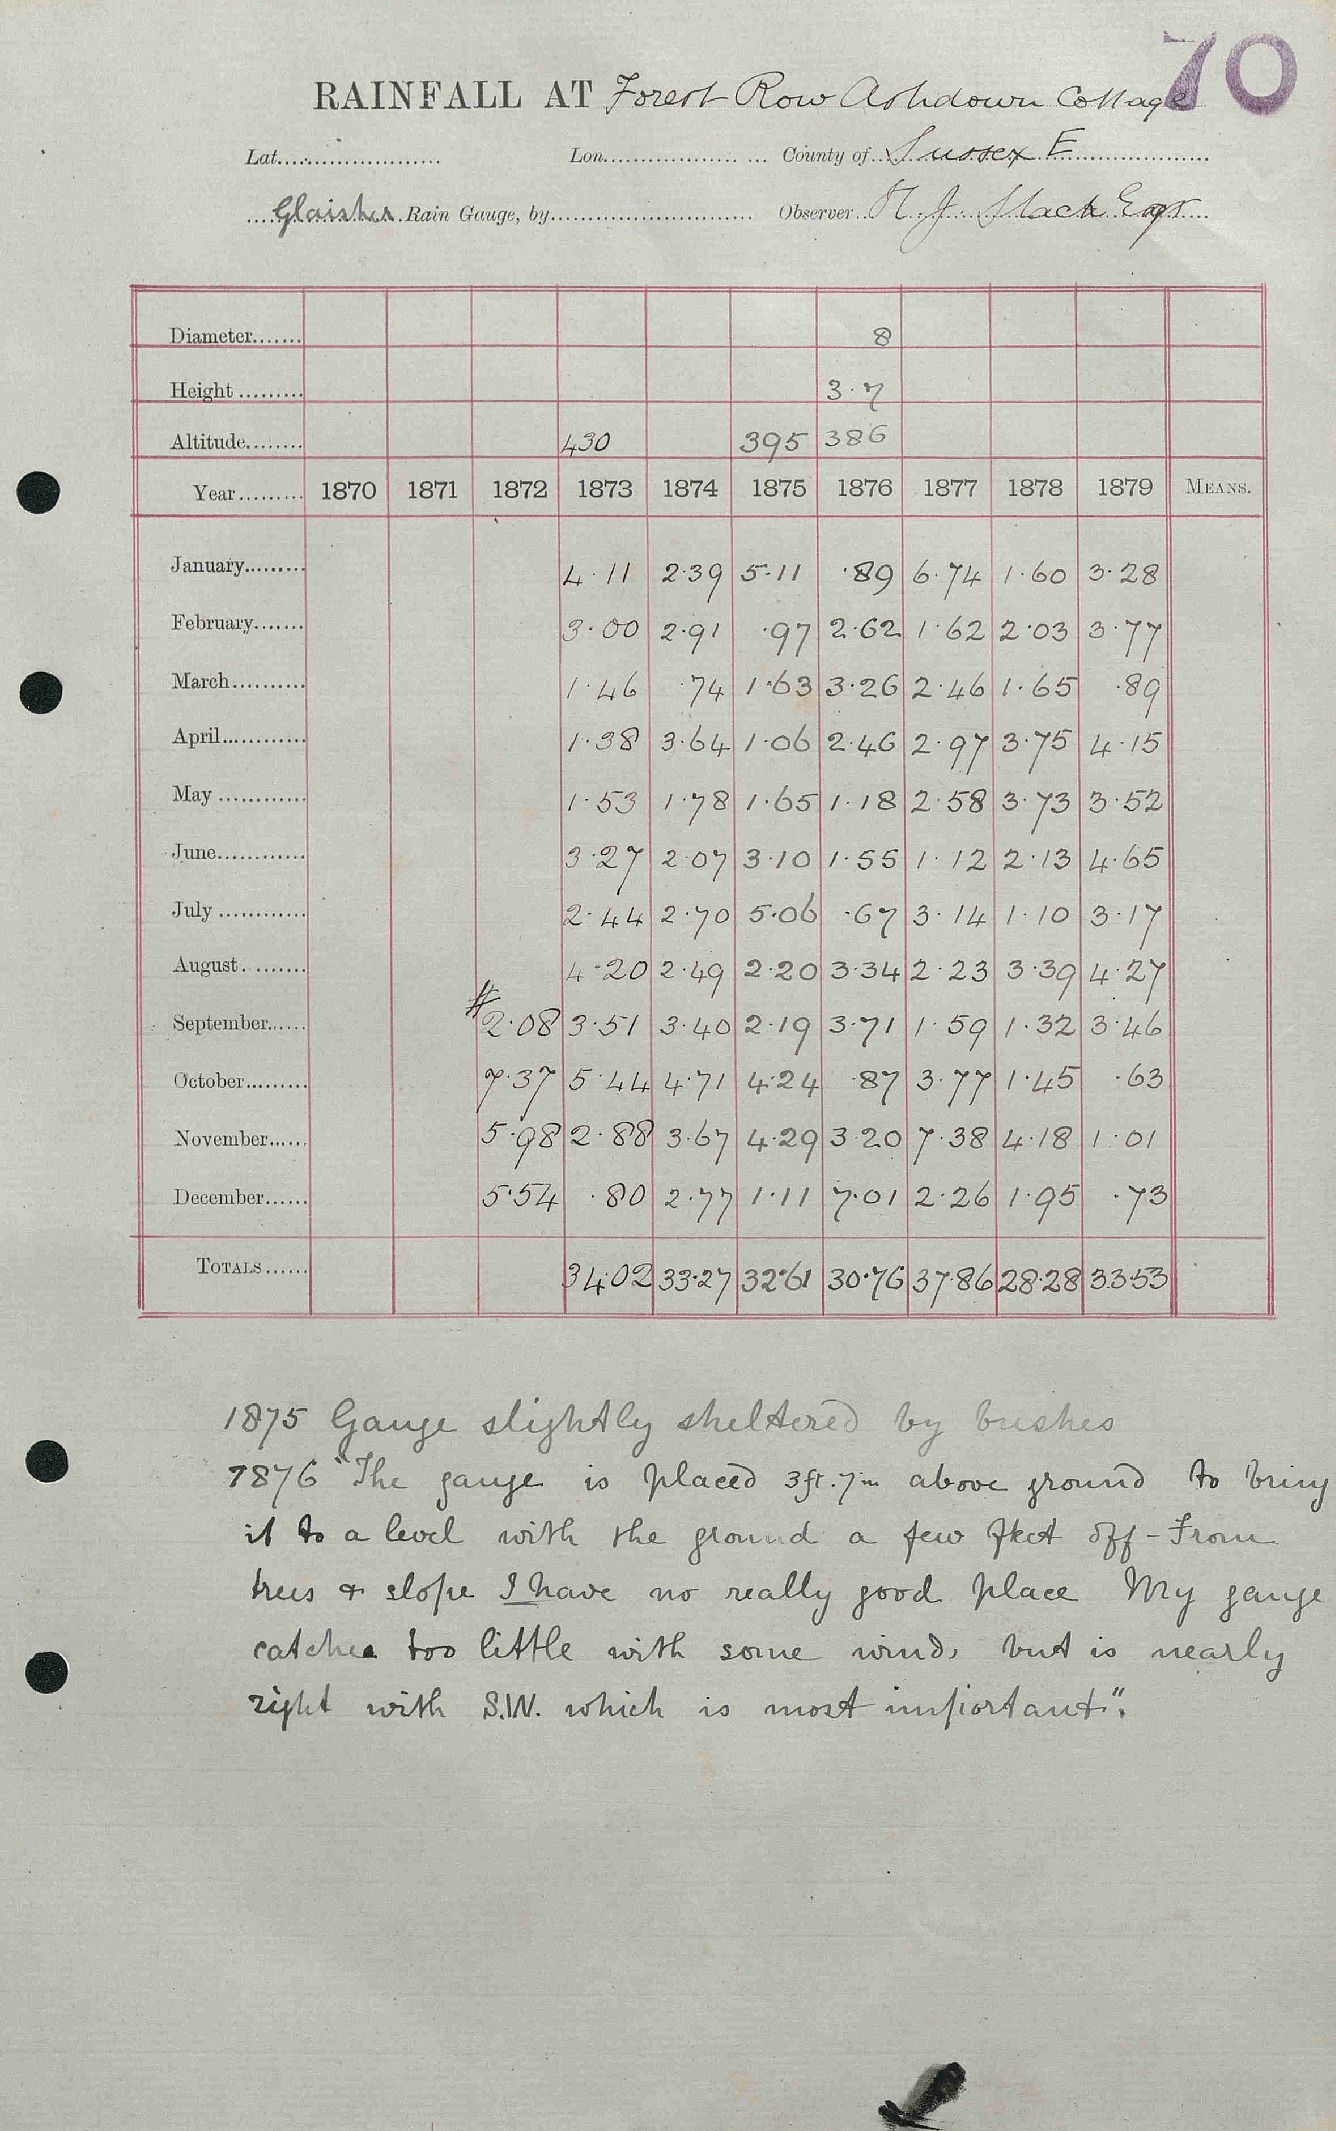 70
RAINFALL AT Forest Row Ashdown Cottage
Lat. Lon. County of Sussex E
Glaisher Rain Gauge, by Observer H. J. Slack Esqr
Diameter 8
Height 3.7
Altitude 430 395 386
Year 1870 1871 1872 1873 1874 1875 1876 1877 1878 1879 MEANS.
January 4.11 2.39 5.11 .89 6.74 1.60 3.28
February 3.00 2.91 .97 2.62 1.62 2.03 3.77
March 1.46 .74 1.63 3.26 2.46 1.65 .89
April 1.38 3.64 1.06 2.46 2.97 3.75 4.15
May 1.53 1.78 1.65 1.18 2.58 3.73 3.52
June 3.27 2.07 3.10 1.55 1.12 2.13 4.65
July 2.44 2.70 5.06 .67 3.14 1.10 3.17
August 4.20 2.49 2.20 3.34 2.23 3.39 4.27
September # 2.08 3.51 3.40 2.19 3.71 1.59 1.32 3.46
October 7.37 5.44 4.71 4.24 .87 3.77 1.45 .63
November 5.98 2.88 3.67 4.29 3.20 7.38 4.18 1.01
December 5.54 .80 2.77 1.11 7.01 2.26 1.95 .73
TOTALS 34.02 33.27 32.61 30.76 37.86 28.28 33.53
1875 Gauge slightly sheltered by bushes
1876 "The gauge is placed 3ft. 7in above ground to bring
it to a level with the ground a few feet off - From
trees & slope I have no really good place My gauge
catches too little with some winds but is nearly
right with S.W. which is most important".